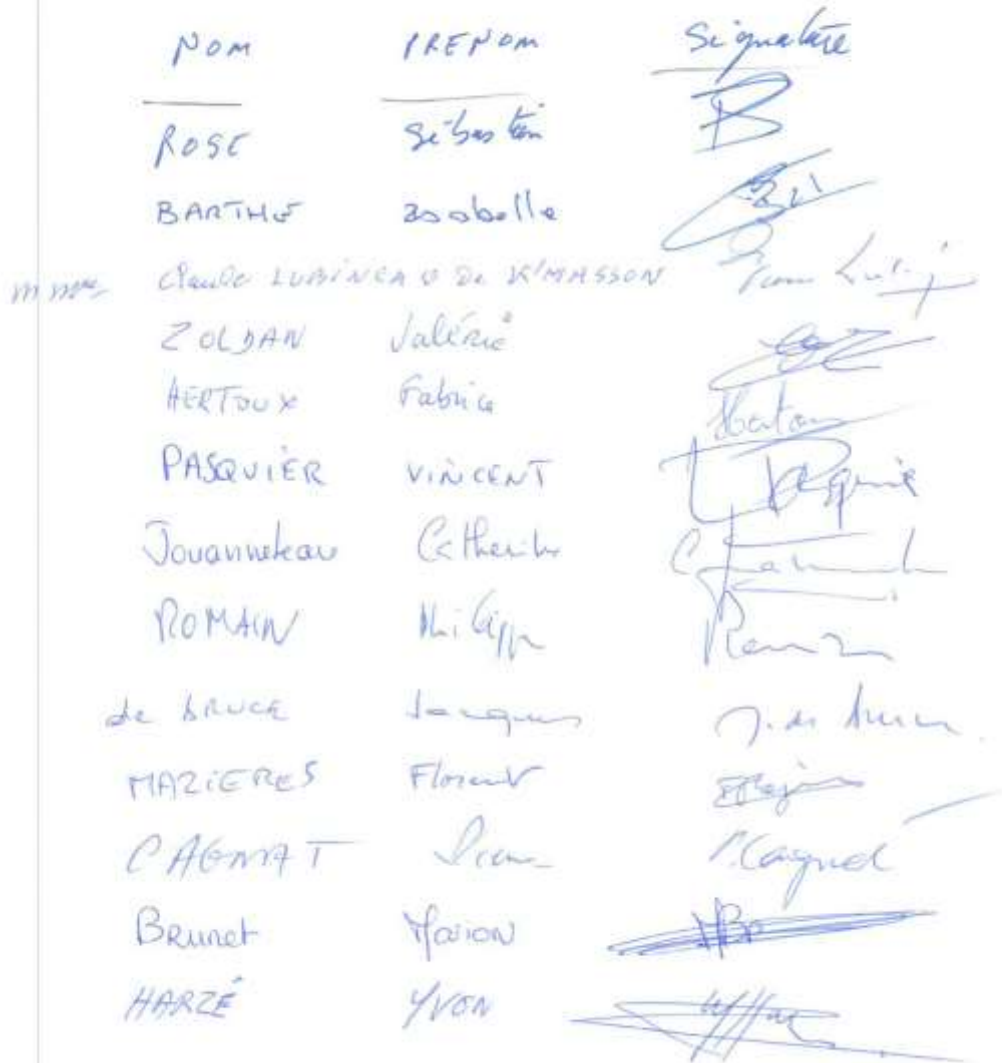 NOM PRENOM Signature
ROSE Sébastien
BARTHE Isabelle
Claude LUBINEAU De K/MASSON
ZOLDAN Valérie
HERTOUX Fabrice
PASQUIER VINCENT
Jouanneteau Catherine
ROMAIN Philippe
de BRUCE Jacques
MAZIERES Florent
CAGNAT
Brunet Marion
HARZÉ YVON